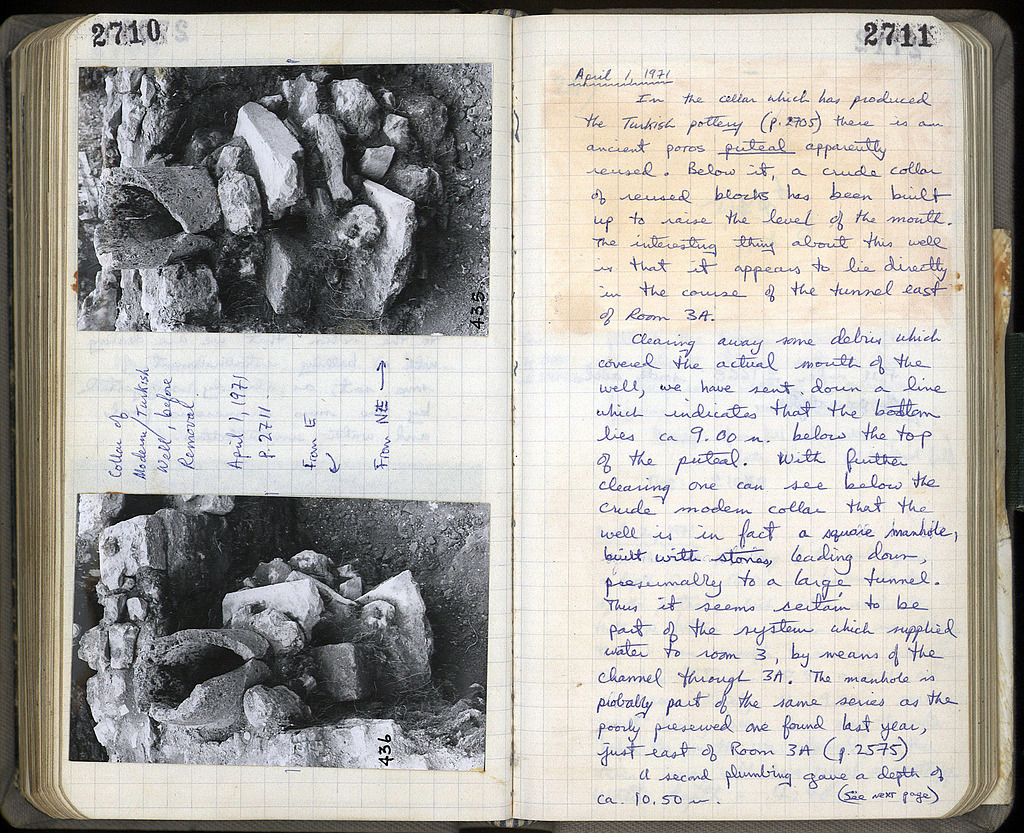 2710
435
Collar of
Modern/Turkish
Well, before
Removal.
April 1, 1971
p. 2711
From E
From NE →
436
2711
April 1, 1971
In the cellar which has produced
the Turkish pottery (p. 2705) there is an
ancient poros puteal apparently
reused. Below it, a crude collar
of reused blocks has been built
up to raise the level of the mouth.
The interesting thing about this well
is that it appears to lie directly
in the course of the tunnel east
of Room 3A.
Clearing away some debris which
covered the actual mouth of the
well, we have sent down a line
which indicates that the bottom
lies ca 9.00 m. below the top
of the puteal. With further
clearing one can see below the
crude modern collar that the
well is in fact a square manhole,
built with stones, leading down,
presumably to a large tunnel.
Thus it seems certain to be
part of the system which supplied
water to room 3, by means of the
channel through 3A. The manhole is
probably part of the same series as the
poorly preserved one found last year,
just east of Room 3A (p. 2575)
A second plumbing gave a depth of
ca. 10.50 m. (See next page)